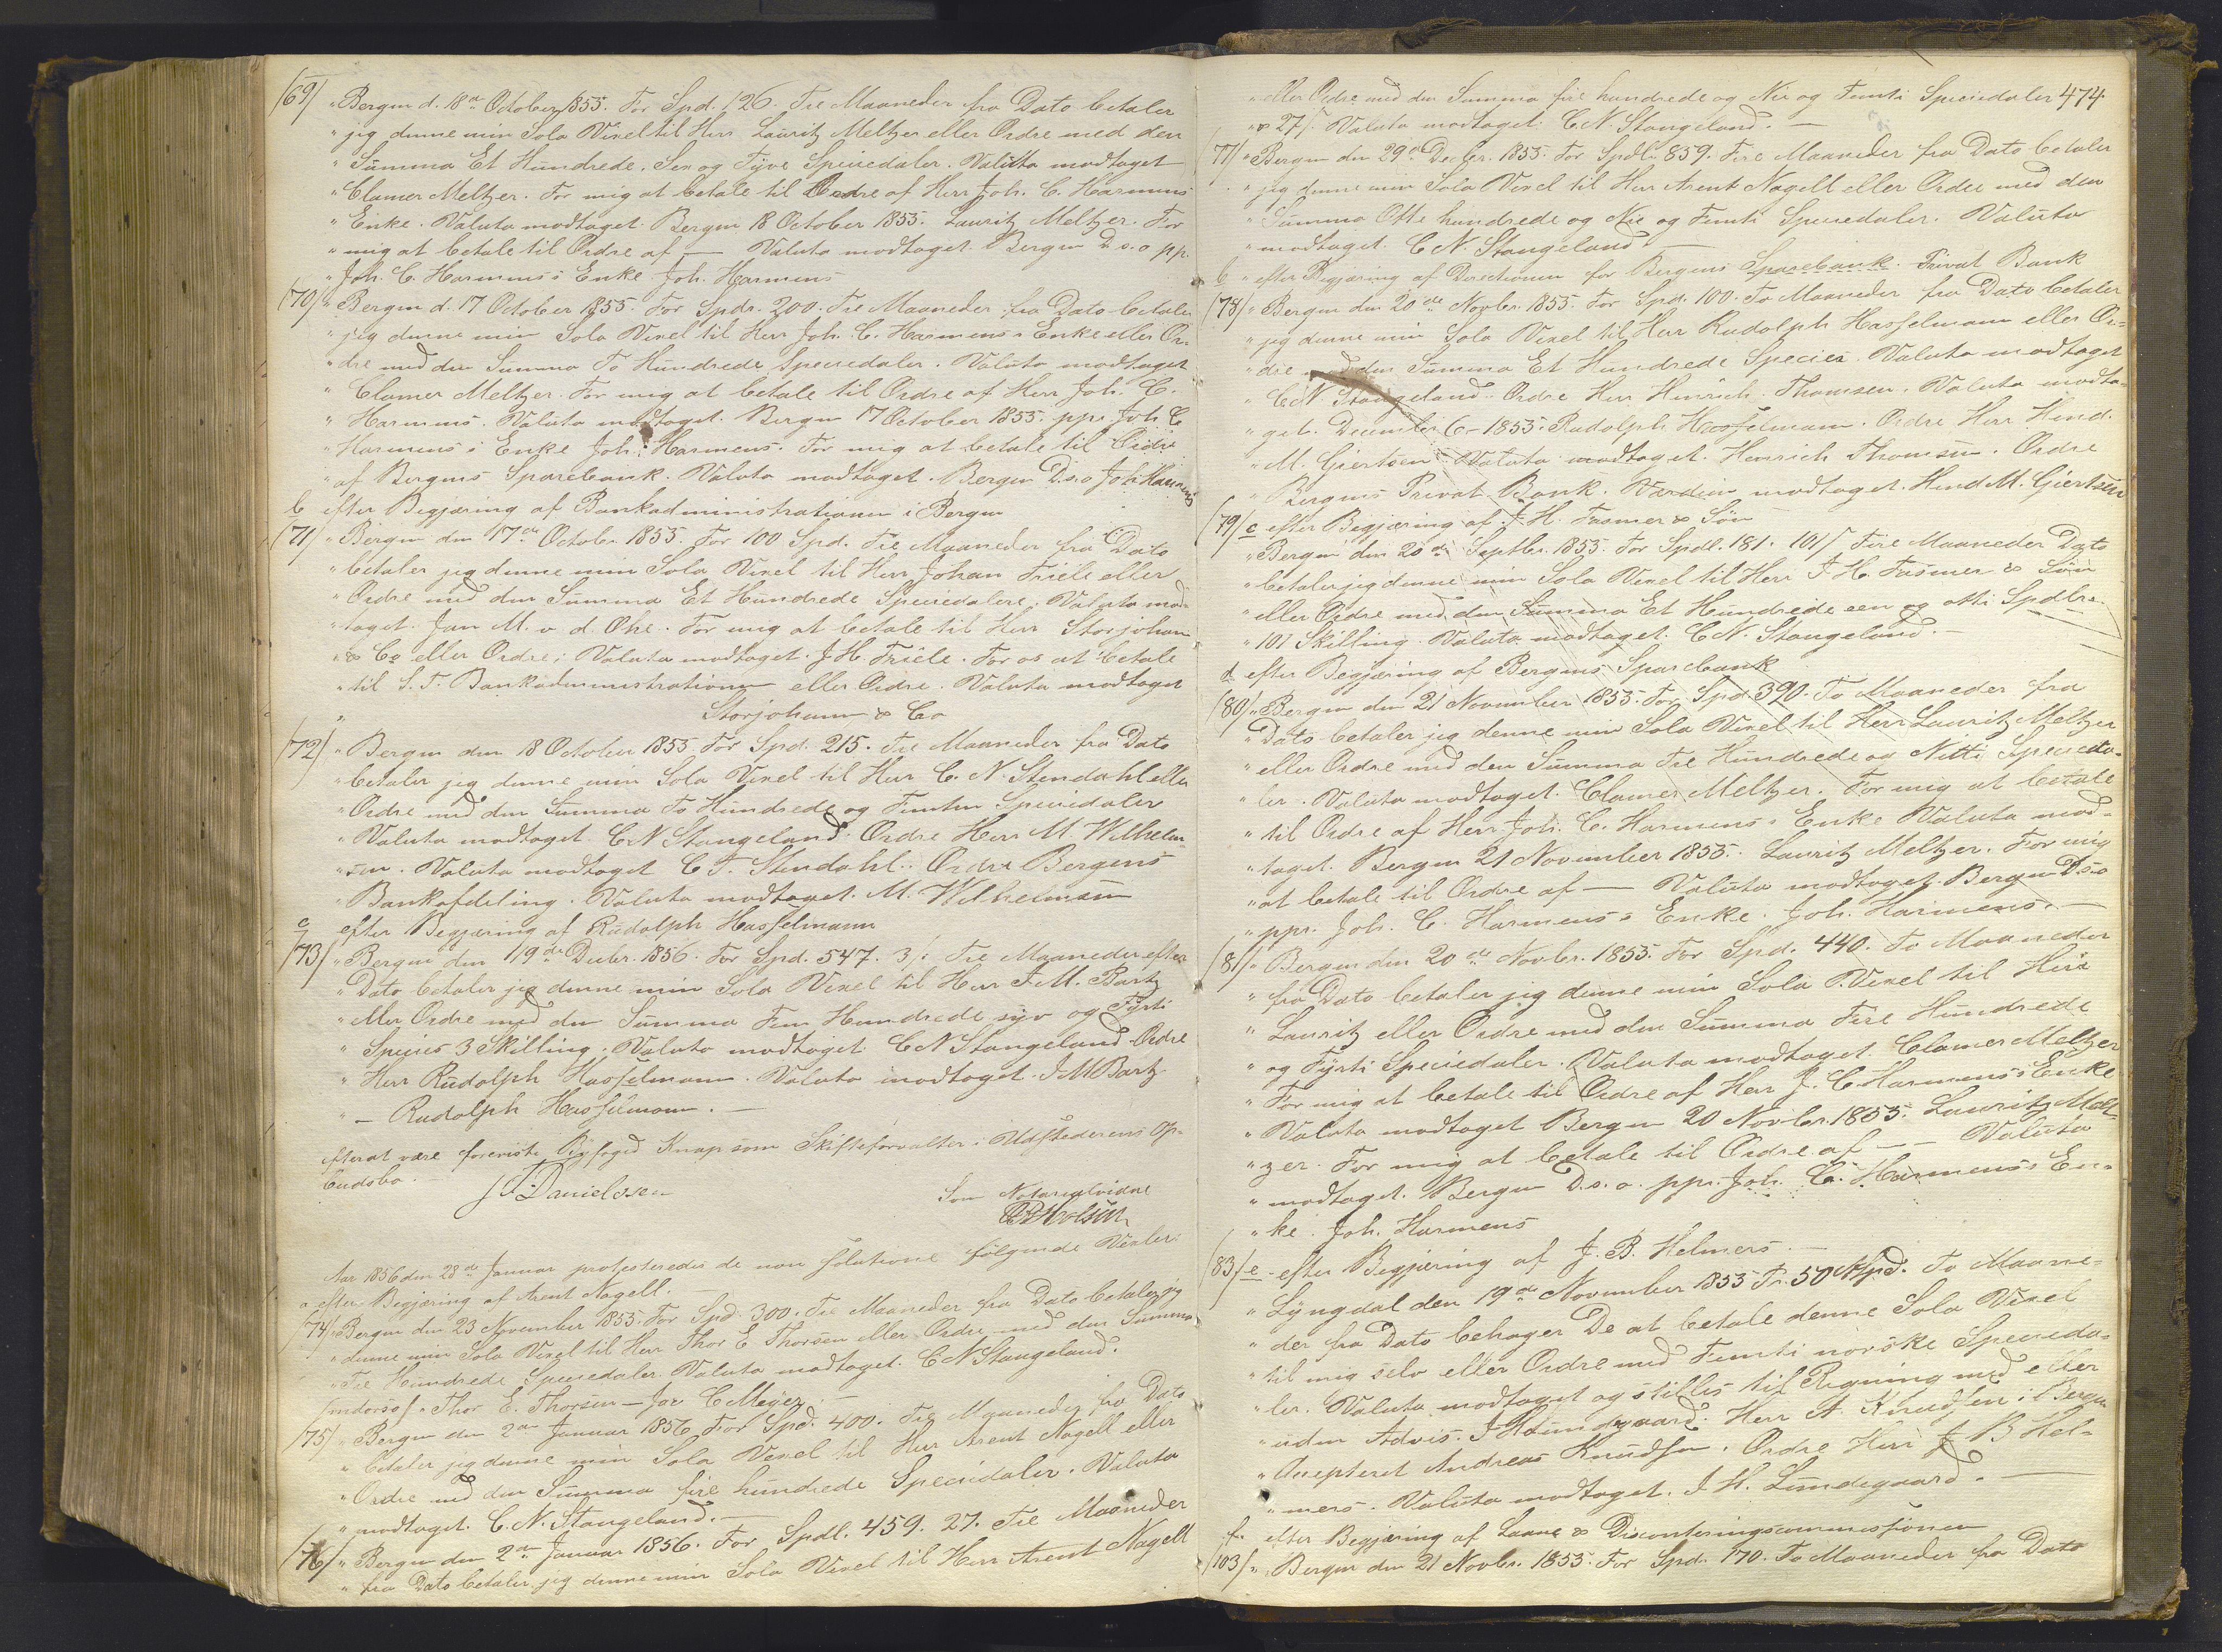 69/ "Bergen d. 18de October 1855. For Spd. 126. Tre Maaneder fra Dato betaler
" jeg denne min Sola Vexel til Herr Lauritz Meltzer eller Ordre med den
" Summa Et Hundrede, Sex og Tyve Speciedaler. Valutta modtaget
" Clamer Meltzer. For mig at betale til Ordre af Herr Joh. C. Harmens
" Enke. Valuta modtaget. Bergen 18 October 1855. Lauritz Meltzer. For
" mig at betale til Ordre af — Valuta modtaget. Bergen D.s.o pp.
" Joh. C. Harmens's Enke Joh. Harmens
(70/ "Bergen d. 17 October 1855. For Spdr. 200. Tre Maaneder fra Dato betaler
" jeg denne min Sola Vexel til Herr Joh. C. Harmens's Enke eller Or-
" dre med den Summa To Hundrede Speciedaler. Valuta modtaget
" Clamer Meltzer. For mig at betale til Ordre af Herr Joh. C.
" Harmens. Valuta modtaget. Bergen 17 October 1855. ppr Joh. C
" Harmens's Enke Joh. Harmens. For mig at betale til Ordre
" af Bergens Sparebank. Valuta modtaget. Bergen D.s.o Joh. Harmens
b efter Begjæring af Bankadministrationen i Bergen
(71/ "Bergen den 17de October 1855. For 100 Spd. Tre Maaneder fra Dato
" betaler jeg denne min Sola Vexel til Herr Johan Friele eller
" Ordre med den Summa Et Hundrede Speciedalere. Valuta mod-
" taget. Jan M. v. d. Ohe. For mig at betale til Herr Storjohann
" & Co eller Ordre; Valuta modtaget. J H Friele. For os at betale
" til S. T. Bankadministrationen eller Ordre. Valuta modtaget
" Storjohann & Co
(72/ "Bergen den 18 October 1855 For Spd. 215. Tre Maaneder fra Dato
" betaler jeg denne min Sola Vexel til Herr C. N. Stendahl eller
" Ordre med den Summa To Hundrede og Femten Speciedaler
" Valuta modtaget C N Stangeland. Ordre Herr M. Wilhelm-
" sen. Valuta modtaget C T. Stendahl. Ordre Bergens
" Bankafdeling. Valuta modtaget. M. Wilhelmsen
c efter Begjæring af Rudolph Hasselmann
(73/ "Bergen den 19de Decbr. 1856. For Spd. 547. 3/. Tre Maaneder efter
" Dato betaler jeg denne min Sola Vexel til Herr J. M. Bartz
" eller Ordre med den Summa Fem Hundrede syv og Fyrti
" Species 3 Skilling. Valuta modtaget C N Stangeland. Ordre
" Herr Rudolph Hasselmann. Valuta modtaget. J M Bartz
" — Rudolph Hasselmann. —
efterat være foreviist Byfoged Knap som Skifteforvalter i Udstederens Op-
budsbo. —
J F Danielssen Som Notarialvidne

Aar 1856 den 28de Januar protesteredes de non solutione følgende Vexler:
a efter Begjæring af Arent Nagell. —
(74/ "Bergen den 23 November 1855. For Spd. 300. Tre Maaneder fra Dato betaler jeg
" denne min Sola Vexel til Herr Thor E Thorsen eller Ordre med den Summa
" Tre Hundrede Speciedaler. Valuta modtaget. C N Stangeland.
/indorso/ " Thor E. Thorsen — Jor C Meyer —
(75/ "Bergen den 2den Januar 1856 For Spd. 400. Tre Maaneder fra Dato
" betaler jeg denne min Sola Vexel til Herr Arent Nagell eller
" Ordre med den Summa fire hundrede Speciedaler. Valuta
" modtaget. C. N. Stangeland. —
(76/ "Bergen den 2den Januar 1856. For Spdl. 459. 27. Tre Maaneder
" fra Dato betaler jeg denne min Sola Vexel til Herr Arent Nagell
" eller Ordre med den Summa fire hundrede og Nie og Femti Speciedaler 474
" & 27/. Valuta modtaget. C N. Stangeland. —
77/ "Bergen den 29de Decbr. 1855. For Spdlr 859. Fire Maaneder fra Dato betaler
" jeg denne min Sola Vexel til Herr Arent Nagell eller Ordre med den
" Summa Otte hundrede og Nie og Femti Speciedaler. Valuta
" modtaget. C N. Stangeland —
b " efter Begjæring af Directionen for Bergens Sparebank. Privat Bank
(78/ "Bergen den 20de Novbr. 1855. For Spd. 100. To Maaneder fra Dato betaler
" jeg denne min Sola Vexel til Herr Rudolph Hasselmann eller Or-
" dre med den Summa Et Hundrede Species. Valuta modtaget
" C N Stangeland. Ordre Herr Hinrich Thomsen. Valuta modta-
" get. December 6 — 1855. Rudolph Hasselmann. Ordre Herr Hend.
" M. Giertsen. Valuta modtaget. Henrich Thomsen. Ordre
" Bergens Privat Bank. Værdien modtaget. Hend M. Giertsen
(79/ c efter Begjæring af J. H. Fasmer & Søn
" Bergen den 20de Septbr. 1855. For Spdl. 181. 101/ Fire Maaneder Dato
" betaler jeg denne min Sola Vexel til Herr J. H. Fasmer & Søn
" eller Ordre med den Summa Et Hundrede een og otti Spdlr
" 101 Skilling. Valuta modtaget. C N. Stangeland. —
d efter Begjæring af Bergens Sparebank
(80/ "Bergen den 21 November 1855. For Spd 390. To Maaneder fra
" Dato betaler jeg denne min Sola Vexel til Herr Lauritz Meltzer
" eller Ordre med den Summa Tre Hundrede og Nitti Specieda-
" ler. Valuta modtaget. Clamer Meltzer. For mig at betale
" til Ordre af Herr Joh. C. Harmens's Enke Valuta mod-
" taget. Bergen 21 November 1855. Lauritz Meltzer. For mig
" at betale til Ordre af — Valuta modtaget. Bergen D.s.o
" ppr. Joh. C. Harmens's Enke. Joh. Harmens. —
(81/ "Bergen den 20de Novbr. 1855. For Spd. 440. To Maaneder
" fra Dato betaler jeg denne min Sola Vexel til Herr
" Lauritz eller Ordre med den Summa Fire Hundrede
" og Fyrti Speciedaler. Valuta modtaget. Clamer Meltzer
" For mig at betale til Ordre af Herr J. C. Harmens's Enke
" Valuta modtaget Bergen 20 Novbr. 1855. Lauritz Melt-
" zer. For mig at betale til Ordre af — — Valuta
" modtaget. Bergen D.s.o. ppr. Joh. C. Harmens's En-
" ke. Joh. Harmens
(83/ e efter Begjæring af J. B. Helmers. —
" Lyngdal den 19de November 1855 Pr. 50 Spd. To Maane-
" der fra Dato behager De at betale denne Sola Vexel
" til mig selv eller Ordre med Femti norske Specieda-
" ler. Valuta modtaget og stilles til Regning med eller
" uden Advis. J H Lundegaard. Herr A. Knudsen i Bergen
" Accepteret Andreas Knudsen. Ordre Herr J B Hel-
" mers. Valuta modtaget. J. H. Lundegaard. —
f. efter Begjæring af Laane & Disconteringscommissionen
(103/ " Bergen den 21 Novbr. 1855. For Spd. 170. To Maaneder fra Dato